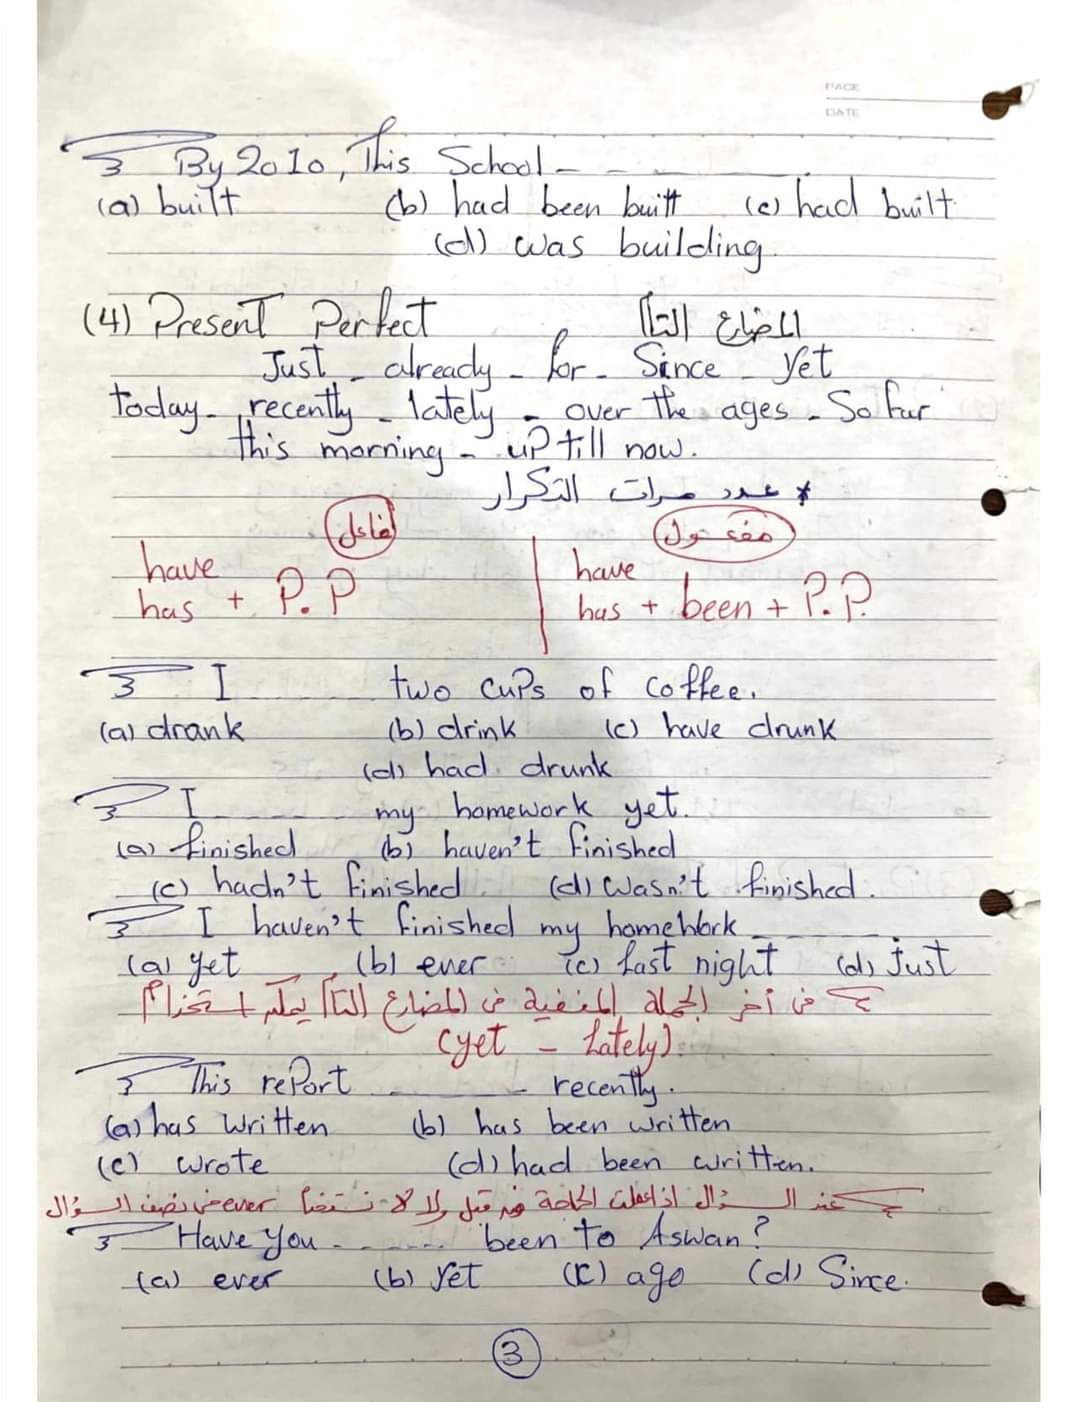 PAGE
DATE
By 2010, This School - - - -
(a) built (b) had been built (c) had built
(d) was building
(4) Present Perfect المضارع التام
Just - already - for - Since - yet
today - recently - lately - over the ages - So far
this morning - up till now.
* عدد مرات التكرار
فاعل مفعول
have have
has + P.P has + been + P.P.
I two cups of coffee.
(a) drank (b) drink (c) have drunk
(d) had drunk
I - - - - - my homework yet.
(a) finished (b) haven't finished
(c) hadn't finished (d) wasn't finished.
I haven't finished my homework - - - - -
(a) yet (b) ever (c) last night (d) just
في أخر الجملة المنفية في المضارع التام يمكن استخدام
(yet - Lately)
This report - - - - - recently.
(a) has written (b) has been written
(c) wrote (d) had been written.
عند السؤال اذا عملت الحاجة من قبل ولا لا نستخدم ever في نصف السؤال
Have you - ...... been to Aswan?
(a) ever (b) yet (c) ago (d) Since.
3